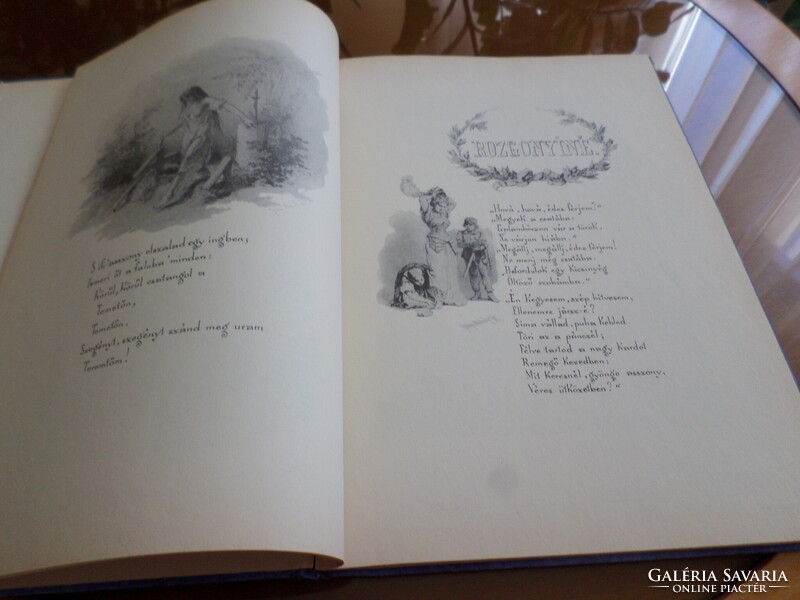 S ő asszony elszalad egy ingben,
Ismeri őt a faluba' minden:
Körűl, körűl csatangol a
Temetőn,
Temetőn.
Szegényt, szegényt szánd meg uram
Teremtőm!
ROZGONYINÉ.
„Hová, hová, édes férjem?"
„Megyek a csatába:
Galambócon vár a török,
Ne várjon hiába."
„Megállj, megállj, édes férjem!
Ne menj még csatába:
Hafordulok egy kicsinyég
Öltöző szobámba."
„Én kegyesem, szép hitvesem,
Ellenemre jársz-é?
Sima vállad, puha kebled
Töri az a páncél;
Félve tartod a nagy kardot
Remegő kezedben:
Mit keresnél, gyönge asszony,
Véres ütközetben?"
GALÉRIA SAVARIA
ONLINE PIACTÉR